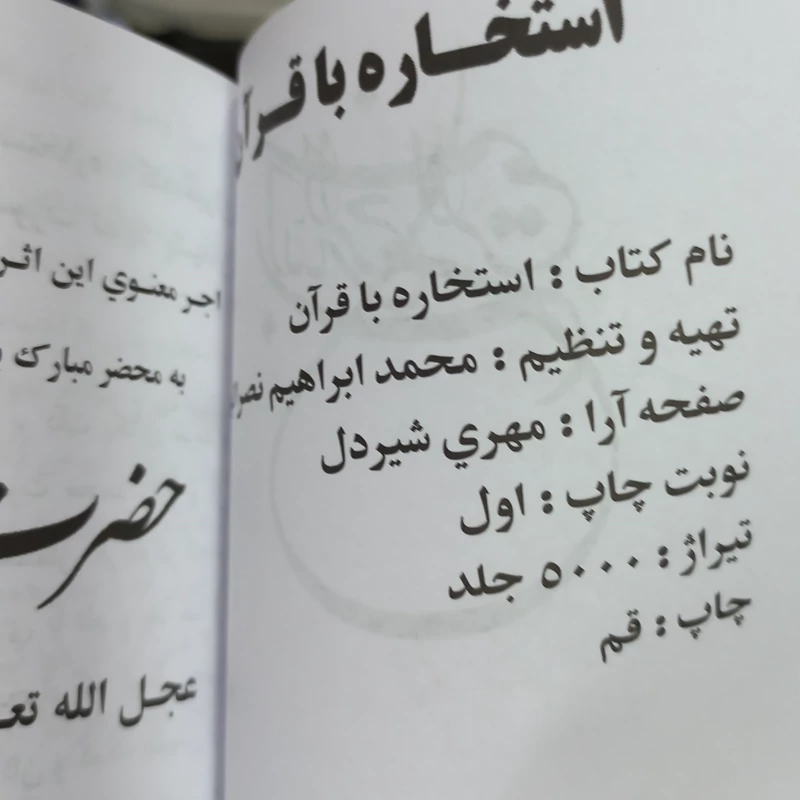 استخاره با قرآن
نام كتاب : استخاره با قرآن
تهيه و تنظيم : محمد ابراهيم
صفحه آرا : مهري شيردل
نوبت چاپ : اول
تيراژ : ۵۰۰۰ جلد
چاپ : قم
اجر معنوي اين اثر
به محضر مبارك
حضرت
عجل الله